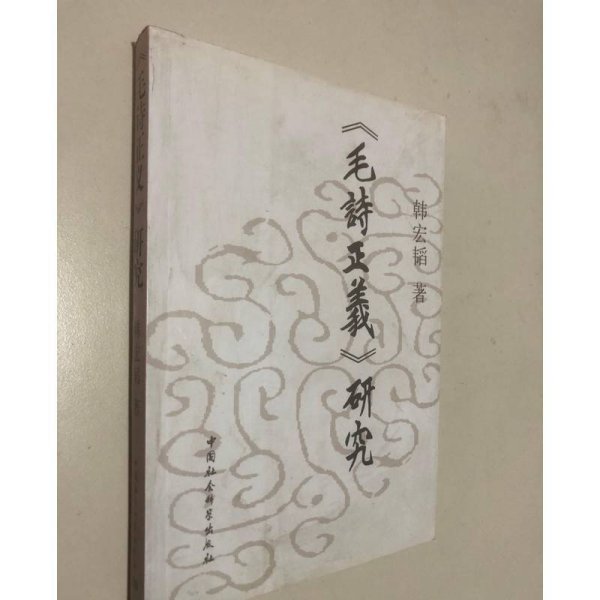 《毛詩正義》研究
韩宏韬 著
中国社会科学出版社
《毛詩正义》研究